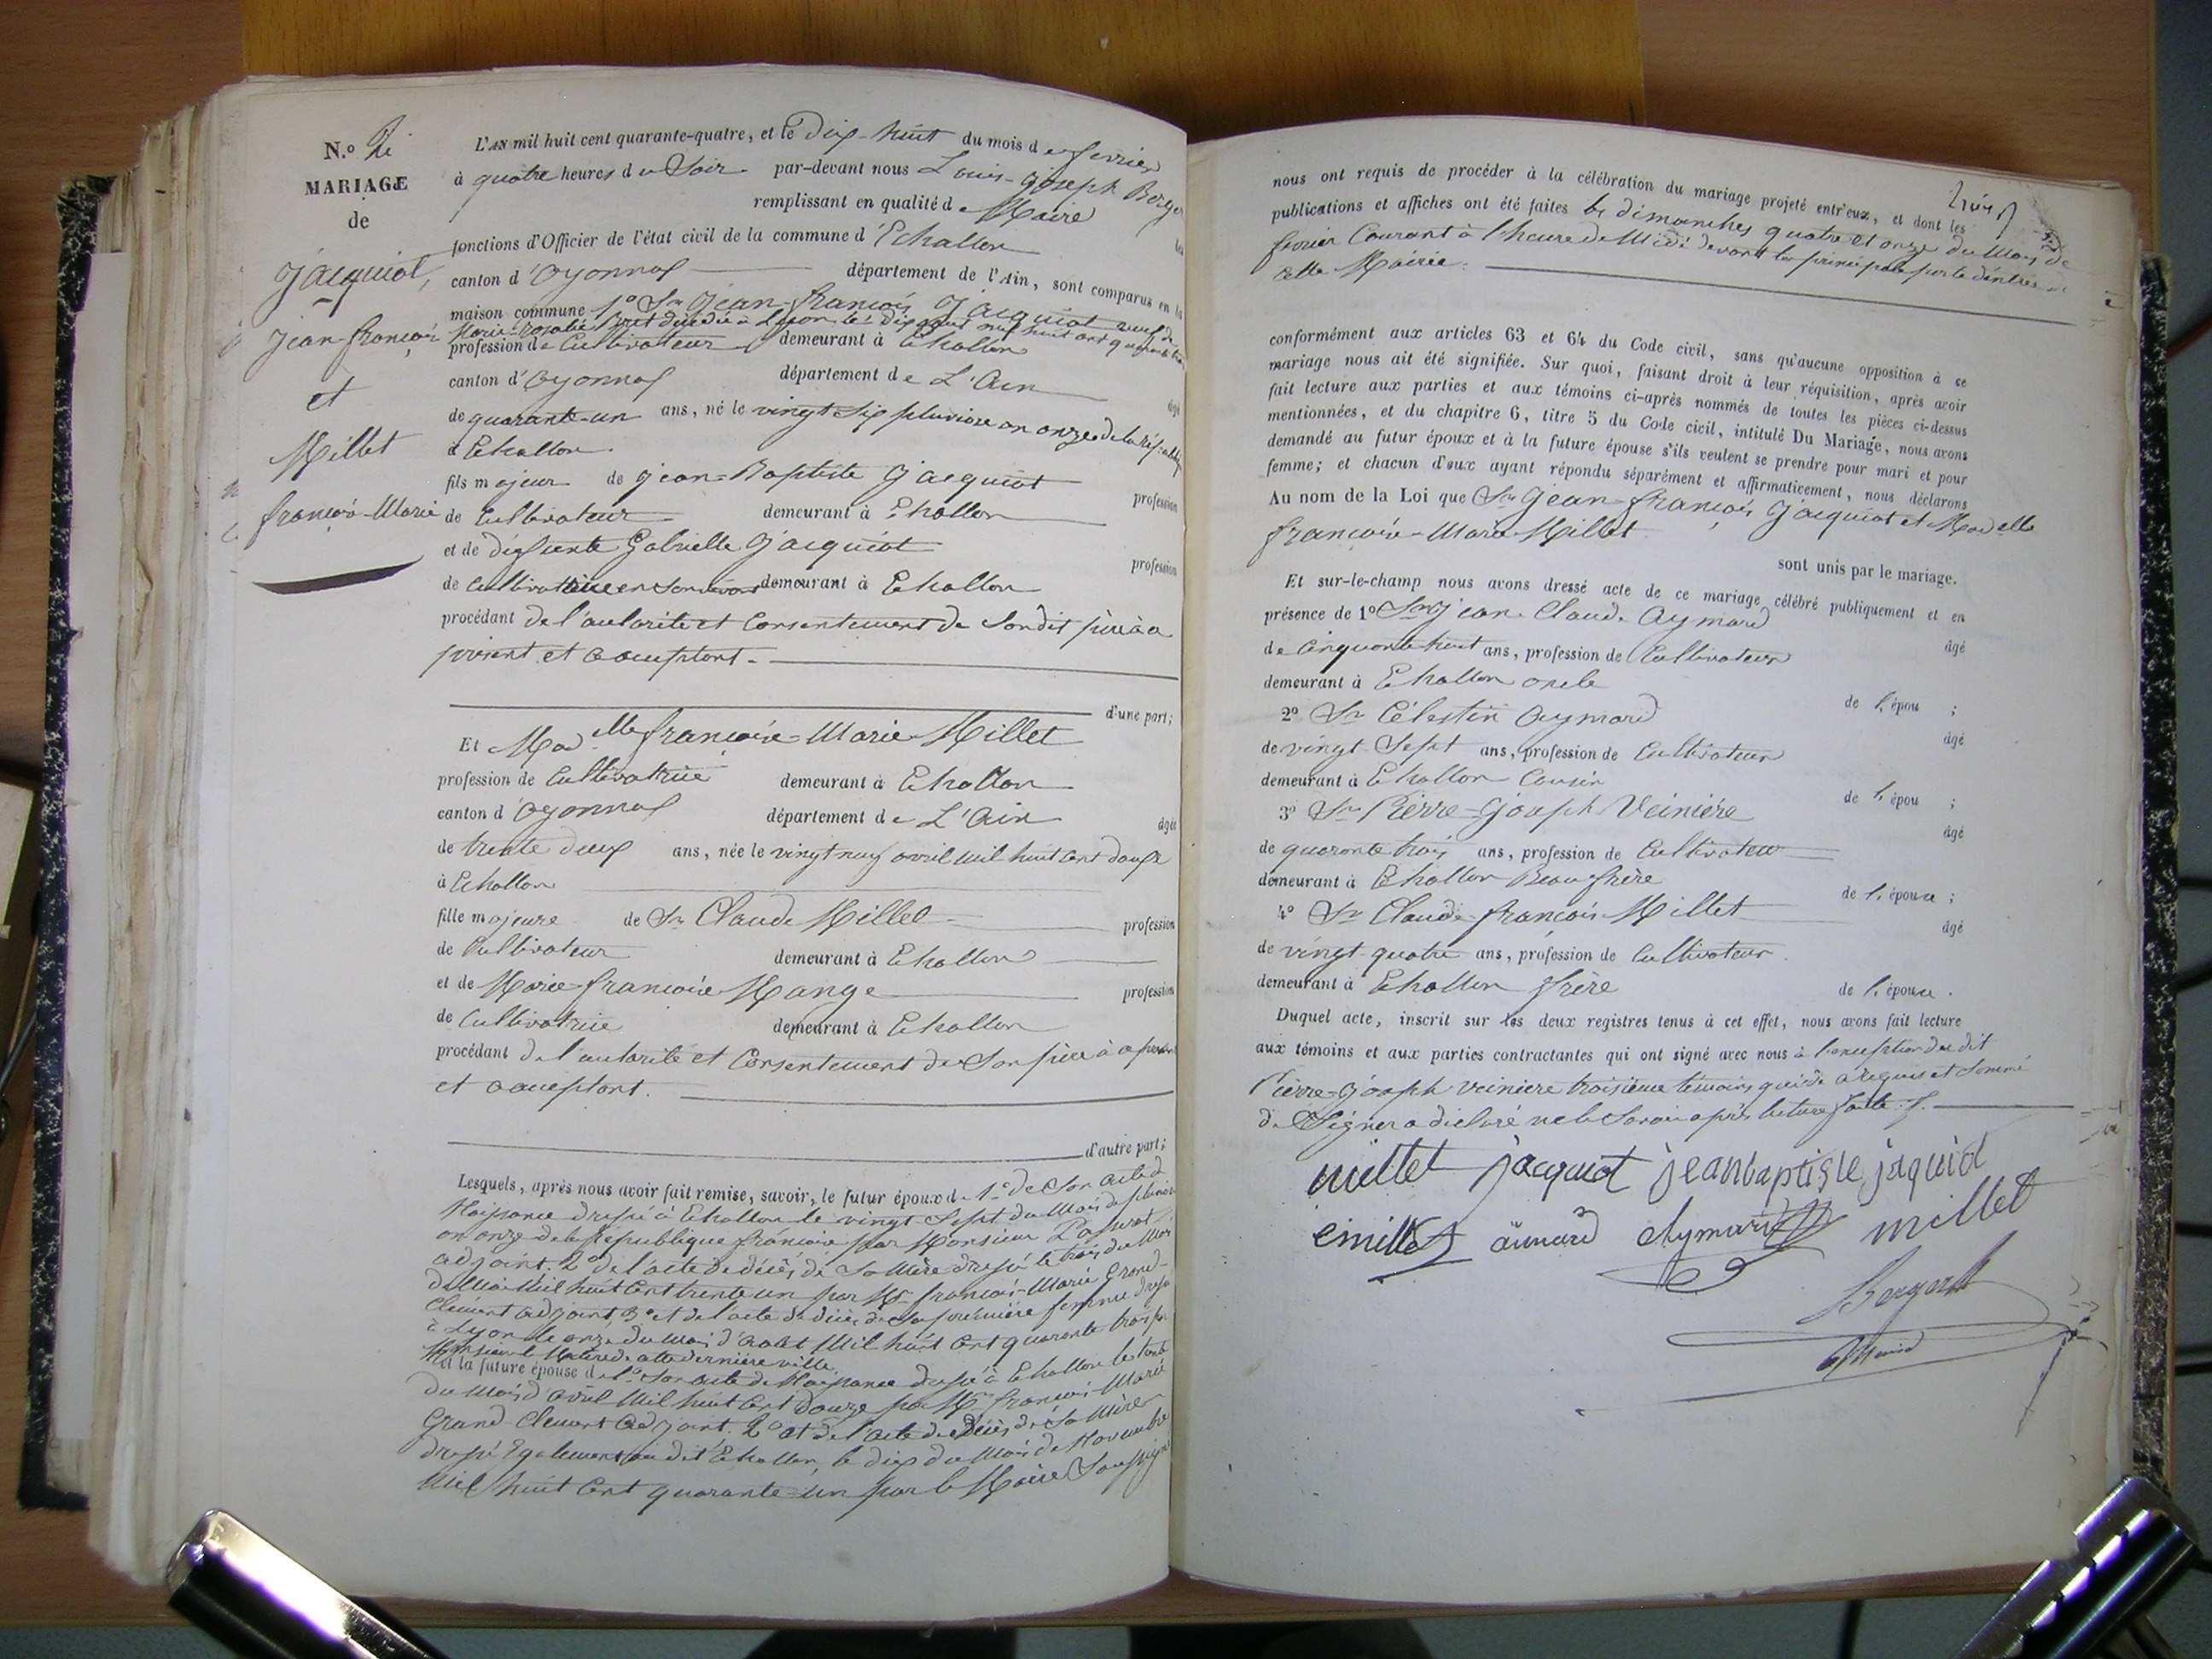 N.o 2
MARIAGE
de
Jacquiot,
Jean-françois
et
Millet
françoise-Marie
L'AN mil huit cent quarante-quatre, et le dix-huit du mois de fevrier
à quatre heures du Soir par-devant nous Louis-Joseph Berger
remplissant en qualité de Maire les
fonctions d'Officier de l'état civil de la commune d'Echallon
canton d'Oyonnax département de l'Ain, sont comparus en la
maison commune 1o Sr Jean-françois Jacquiot veuf de
Marie-Rosalie décédée à Lyon le dix août mil huit cent quarante trois
profession de Cultivateur demeurant à Echallon
canton d'Oyonnax département de L'Ain âgé
de quarante-un ans, né le vingt six pluviose an onze de la républiq
à Echallon
fils majeur de Jean-Baptiste Jacquiot profession
de Cultivateur demeurant à Echallon
et de défunte Gabrielle Jacquiot profession
de Cultivatrice en Son vivant demeurant à Echallon
procédant de l'autorité et Consentement de Sondit père à ce
présent et acceptant.
d'une part;
Et Madelle françoise-Marie Millet
profession de Cultivatrice demeurant à Echallon
canton d'Oyonnax département de L'Ain âgée
de trente deux ans, née le vingt neuf avril mil huit cent douze
à Echallon
fille majeure de Sr Claude Millet profession
de Cultivateur demeurant à Echallon
et de Marie-françoise Mange profession
de Cultivatrice demeurant à Echallon
procédant de l'autorité et Consentement de Son père à ce présent
et acceptant.
d'autre part;
Lesquels, après nous avoir fait remise, savoir, le futur époux de 1o de Son acte de
Naissance dressé à Echallon le vingt Sept du Mois de pluviose
an onze de la République française par Monsieur Passerat
adjoint. 2o de l'acte de décès de Sa Mère dressé le trois du Mois
de Mai Mil huit Cent trente un par Mr françois-Marie Grand-
Clément adjoint, 3o et de l'acte de décès de Sa première femme dressé
à Lyon le onze du mois d'Août Mil huit Cent quarante trois par
Monsieur le Maire de cette dernière ville
Et la future épouse de 1o Son acte de Naissance dressé à Echallon le trente
du Mois d'avril Mil huit Cent douze par Mr françois-Marie
Grand-Clément Adjoint. 2o et de l'acte de Décès de Sa Mère
dressé Egalement au dit Echallon, le dix du Mois de Novembre
Mil huit Cent quarante-un par le Maire Soussigné
nous ont requis de procéder à la célébration du mariage projeté entr'eux, et dont les
publications et affiches ont été faites les dimanches quatre et onze du Mois de
fevrier Courant à l'heure de Midi devant la principale porte d'entrée de
cette Mairie.
conformément aux articles 63 et 64 du Code civil, sans qu'aucune opposition à ce
mariage nous ait été signifiée. Sur quoi, faisant droit à leur réquisition, après avoir
fait lecture aux parties et aux témoins ci-après nommés de toutes les pièces ci-dessus
mentionnées, et du chapitre 6, titre 5 du Code civil, intitulé Du Mariage, nous avons
demandé au futur époux et à la future épouse s'ils veulent se prendre pour mari et pour
femme; et chacun d'eux ayant répondu séparément et affirmativement, nous déclarons
Au nom de la Loi que Sr Jean-françois Jacquiot et Madelle
françoise-Marie Millet
sont unis par le mariage.
Et sur-le-champ nous avons dressé acte de ce mariage célébré publiquement et en
présence de 1o Sr Jean-Claude Aymard âgé
de Cinquante huit ans, profession de Cultivateur
demeurant à Echallon oncle de l'épou ;
2o Sr Célestin Aymard âgé
de vingt-Sept ans, profession de Cultivateur
demeurant à Echallon Cousin de l'épou ;
3o Sr Pierre-Joseph Veinière âgé
de quarante trois ans, profession de Cultivateur
demeurant à Echallon Beau-frère de l'épouse ;
4o Sr Claude-françois Millet âgé
de vingt-quatre ans, profession de Cultivateur.
demeurant à Echallon frère de l'épouse.
Duquel acte, inscrit sur les deux registres tenus à cet effet, nous avons fait lecture
aux témoins et aux parties contractantes qui ont signé avec nous à l'exception du dit
Pierre-Joseph Veiniere troisième témoin qui de ce requis et Sommé
de Signer a déclaré ne le Savoir après lecture faite.
millet jacquiot jeanbaptiste jaquiot
cmillet aimard Aymard millet
Berger
Maire